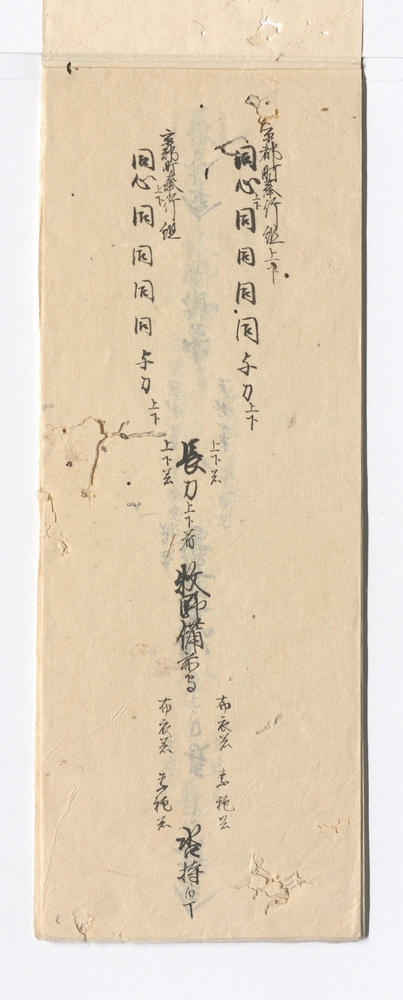 京都町奉行組上下
同心上下 同 同 同 同 与力上下
上下着
布衣着 素袍着
長刀上下着 牧野備前守 沓持白丁
京都町奉行組
同心上下 同 同 同 同 与力上下
上下着
布衣着 素袍着